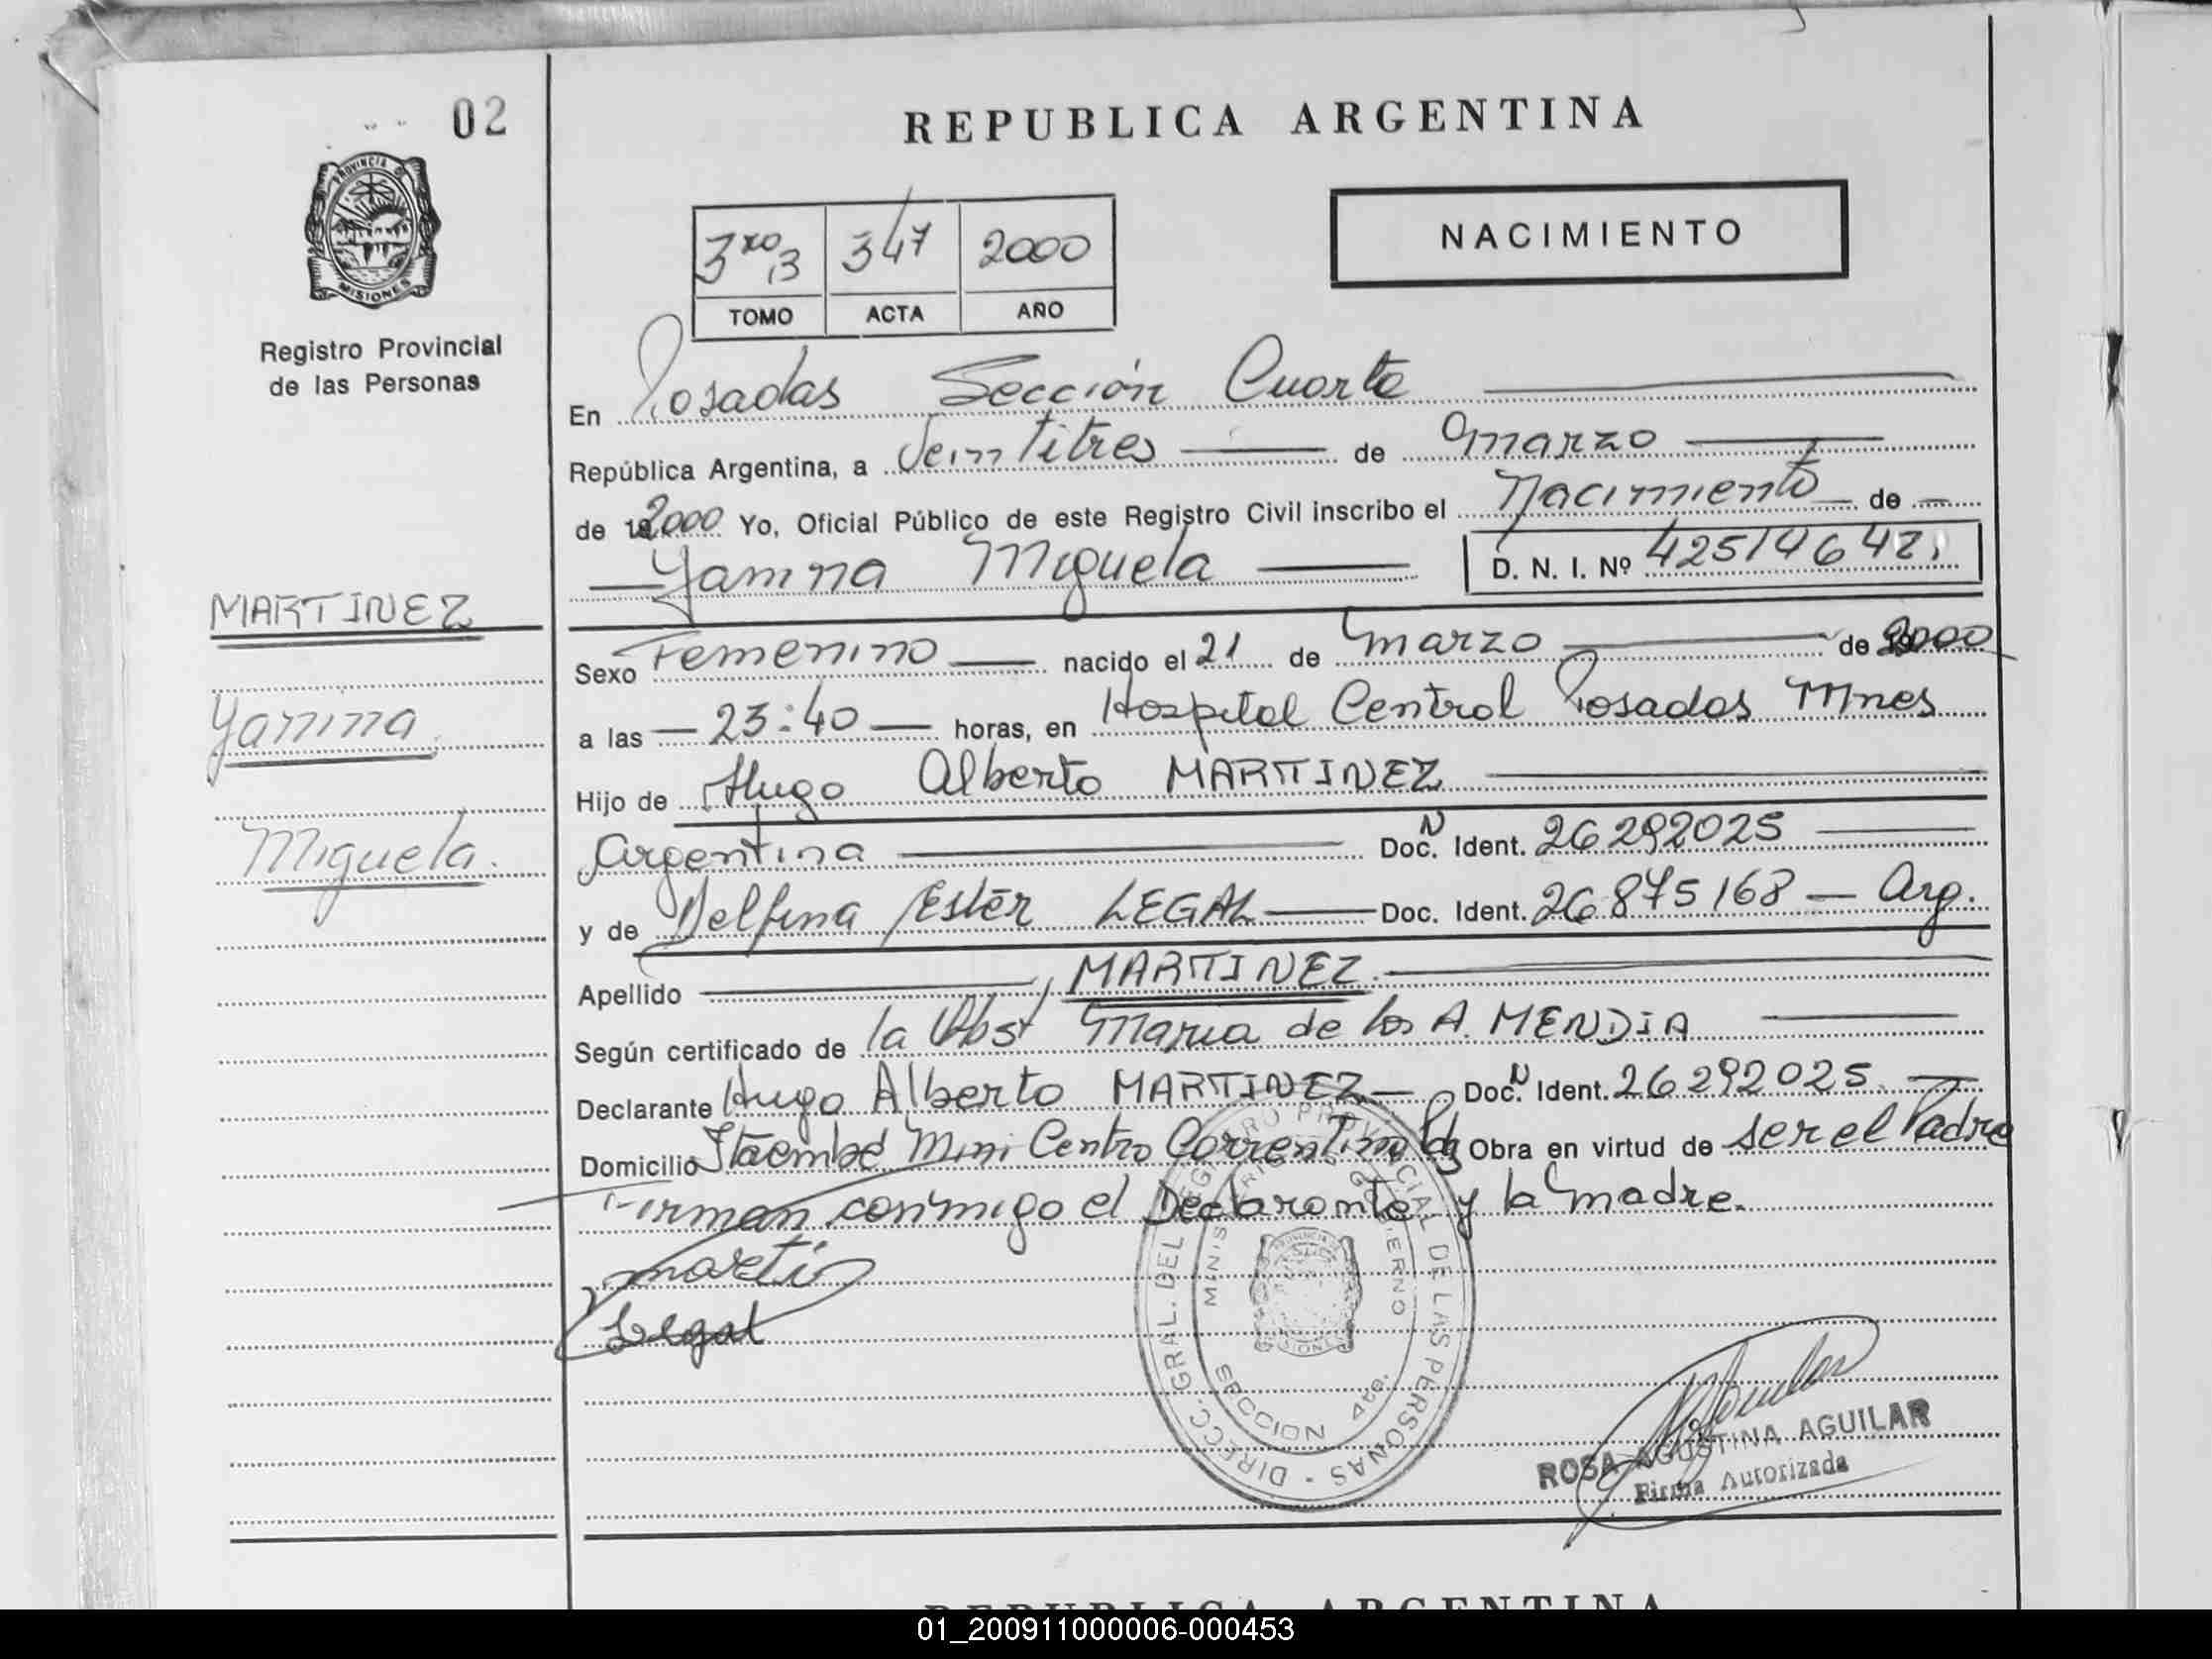 02
REPUBLICA ARGENTINA
PROVINCIA DE
MISIONES
Registro Provincial
de las Personas
NACIMIENTO
3ro B 347 2000
TOMO ACTA AÑO
En Posadas Sección Cuarta
República Argentina, a Veintitres de Marzo
de 2000 Yo, Oficial Público de este Registro Civil inscribo el Nacimiento de
Yamina Miguela D. N. I. Nº
MARTINEZ
Yamina
Miguela.
Sexo Femenino nacido el 21 de Marzo de 2000
a las 23:40 horas, en Hospital Central Posadas Mnes
Hijo de Hugo Alberto MARTINEZ
Argentina Doc. N Ident. 26292025
y de Delfina Ester LEGAL Doc. Ident. 26875168 Arg.
Apellido MARTINEZ
Según certificado de la Obst Maria de los A. MENDIA
Declarante Hugo Alberto MARTINEZ Doc. N Ident. 26292025
Domicilio Itaembé Mini Centro Correntino Obra en virtud de ser el Padre
Firman conmigo el Declarante y la madre.
Legal
DIRECC. GRAL. DEL REGISTRO PROVINCIAL DE LAS PERSONAS
MINISTERIO DE GOBIERNO
SECCION 4ta.
ROSA AGUSTINA AGUILAR
Firma Autorizada
REPUBLICA ARGENTINA
01_200911000006-000453